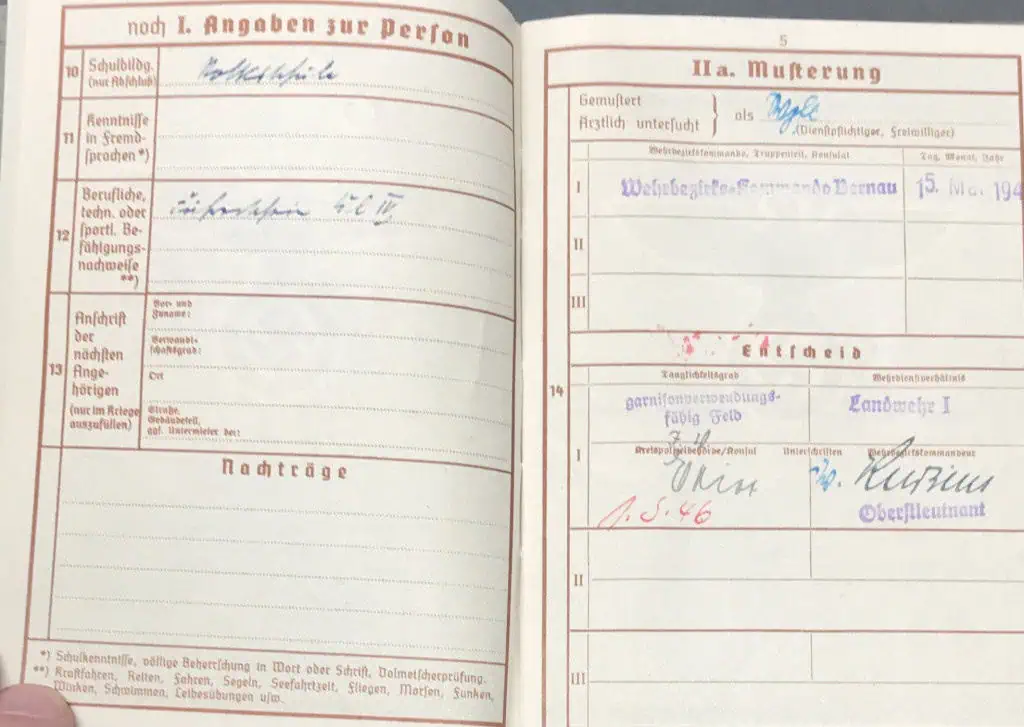 noch I. Angaben zur Person
10
Schulbildg.
(nur Abschluß)
Volksschule
11
Kenntnisse
in Fremd-
sprachen *)
12
Berufliche,
techn. oder
sportl. Be-
fähigungs-
nachweise
**)
Führerschein Kl IV
13
Anschrift
der
nächsten
Ange-
hörigen
(nur im Kriege
auszufüllen)
Vor- und
Zuname:
Verwandt-
schaftsgrad:
Ort
Straße,
Gebäudeteil,
ggf. Untermieter bei:
Nachträge
*) Schulkenntnisse, völlige Beherrschung in Wort oder Schrift, Dolmetscherprüfung.
**) Kraftfahren, Reiten, Fahren, Segeln, Seefahrtzeit, Fliegen, Morsen, Funken,
Winken, Schwimmen, Leibesübungen usw.
5
IIa. Musterung
Gemustert
Ärztlich untersucht
als
(Dienstpflichtiger, Freiwilliger)
Wehrbezirkskommando, Truppenteil, Konsulat
Tag, Monat, Jahr
I
Wehrbezirks-Kommando Bernau
15. 194
II
III
Entscheid
14
Tauglichkeitsgrad
Wehrdienstverhältnis
garnisonverwendungs-
fähig Feld
Landwehr I
I
Kreispolizeibehörde/Konsul
Unterschriften
Wehrbezirkskommandeur
Oberstleutnant
II
III